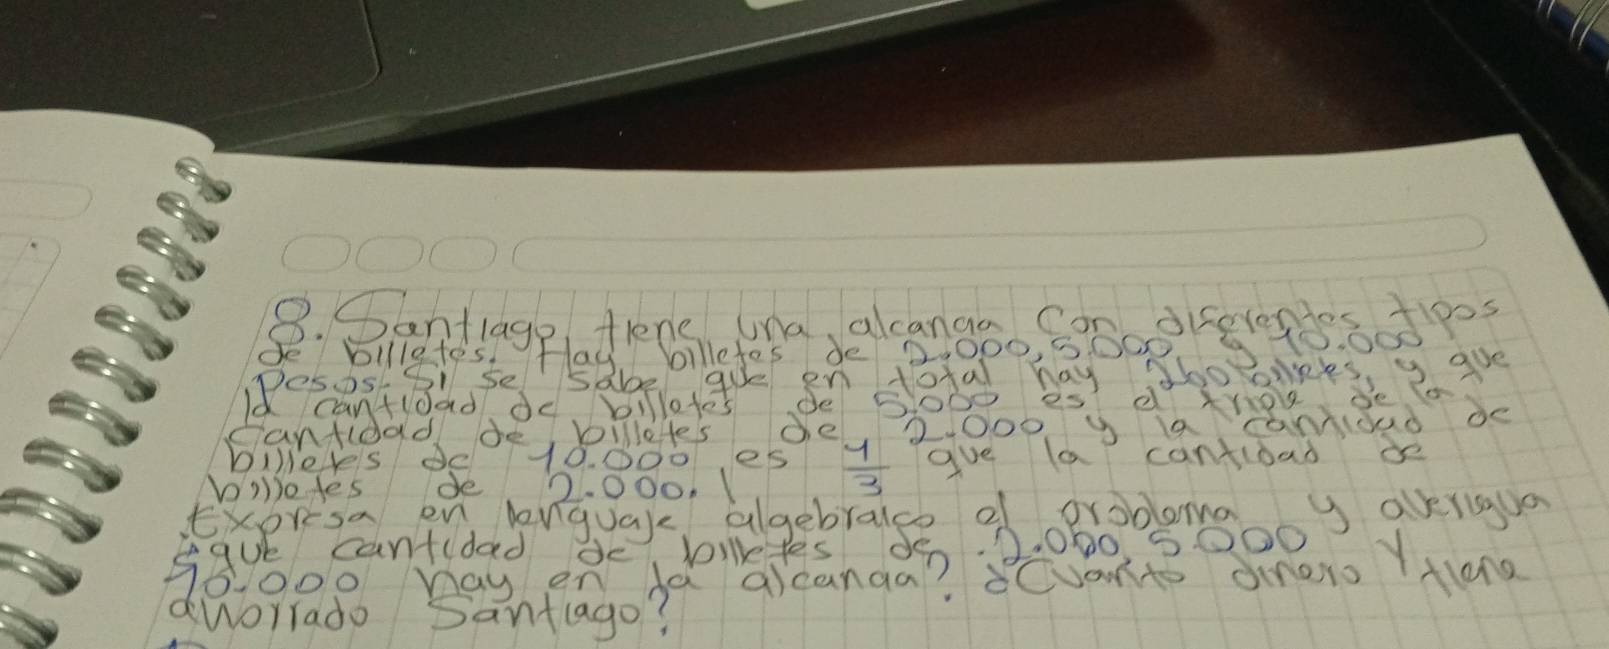 8. Santiago tiene una alcanga con diferentes tipos
de billetes. Hay billetes de 2.000, 5.000 y 10.000
Pesos. Si se sabe que en total hay 260 billetes, y que
la cantidad de billetes de 5.000 es el triple de la
cantidad de billetes de 2.000 y la cantidad de
billetes de 10.000 es 1/3 que la cantidad de
billetes de 2.000.
Expresa en lenguaje algebraico el problema y averigua
que cantidad de billetes de 2.000, 5.000 y
10.000 hay en la alcanga? ¿Cuanto dinero tiene
ahorrado Santiago?